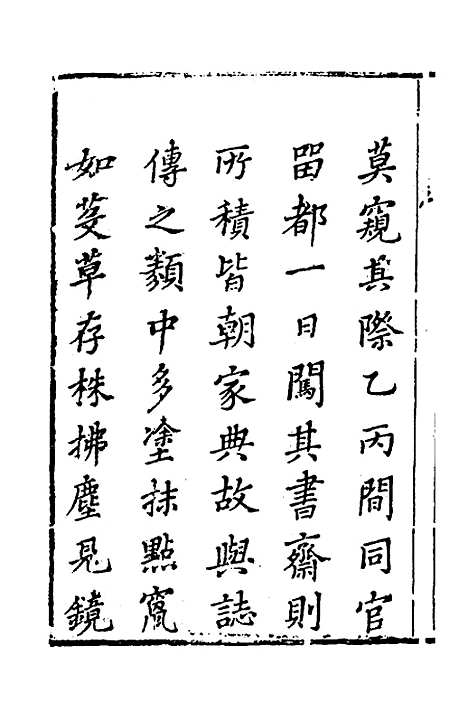 莫窺其際乙丙間同官
留都一日闖其書齋則
所積皆朝家典故與誌
傳之類中多塗抹點竄
如芟草存株拂塵見鏡